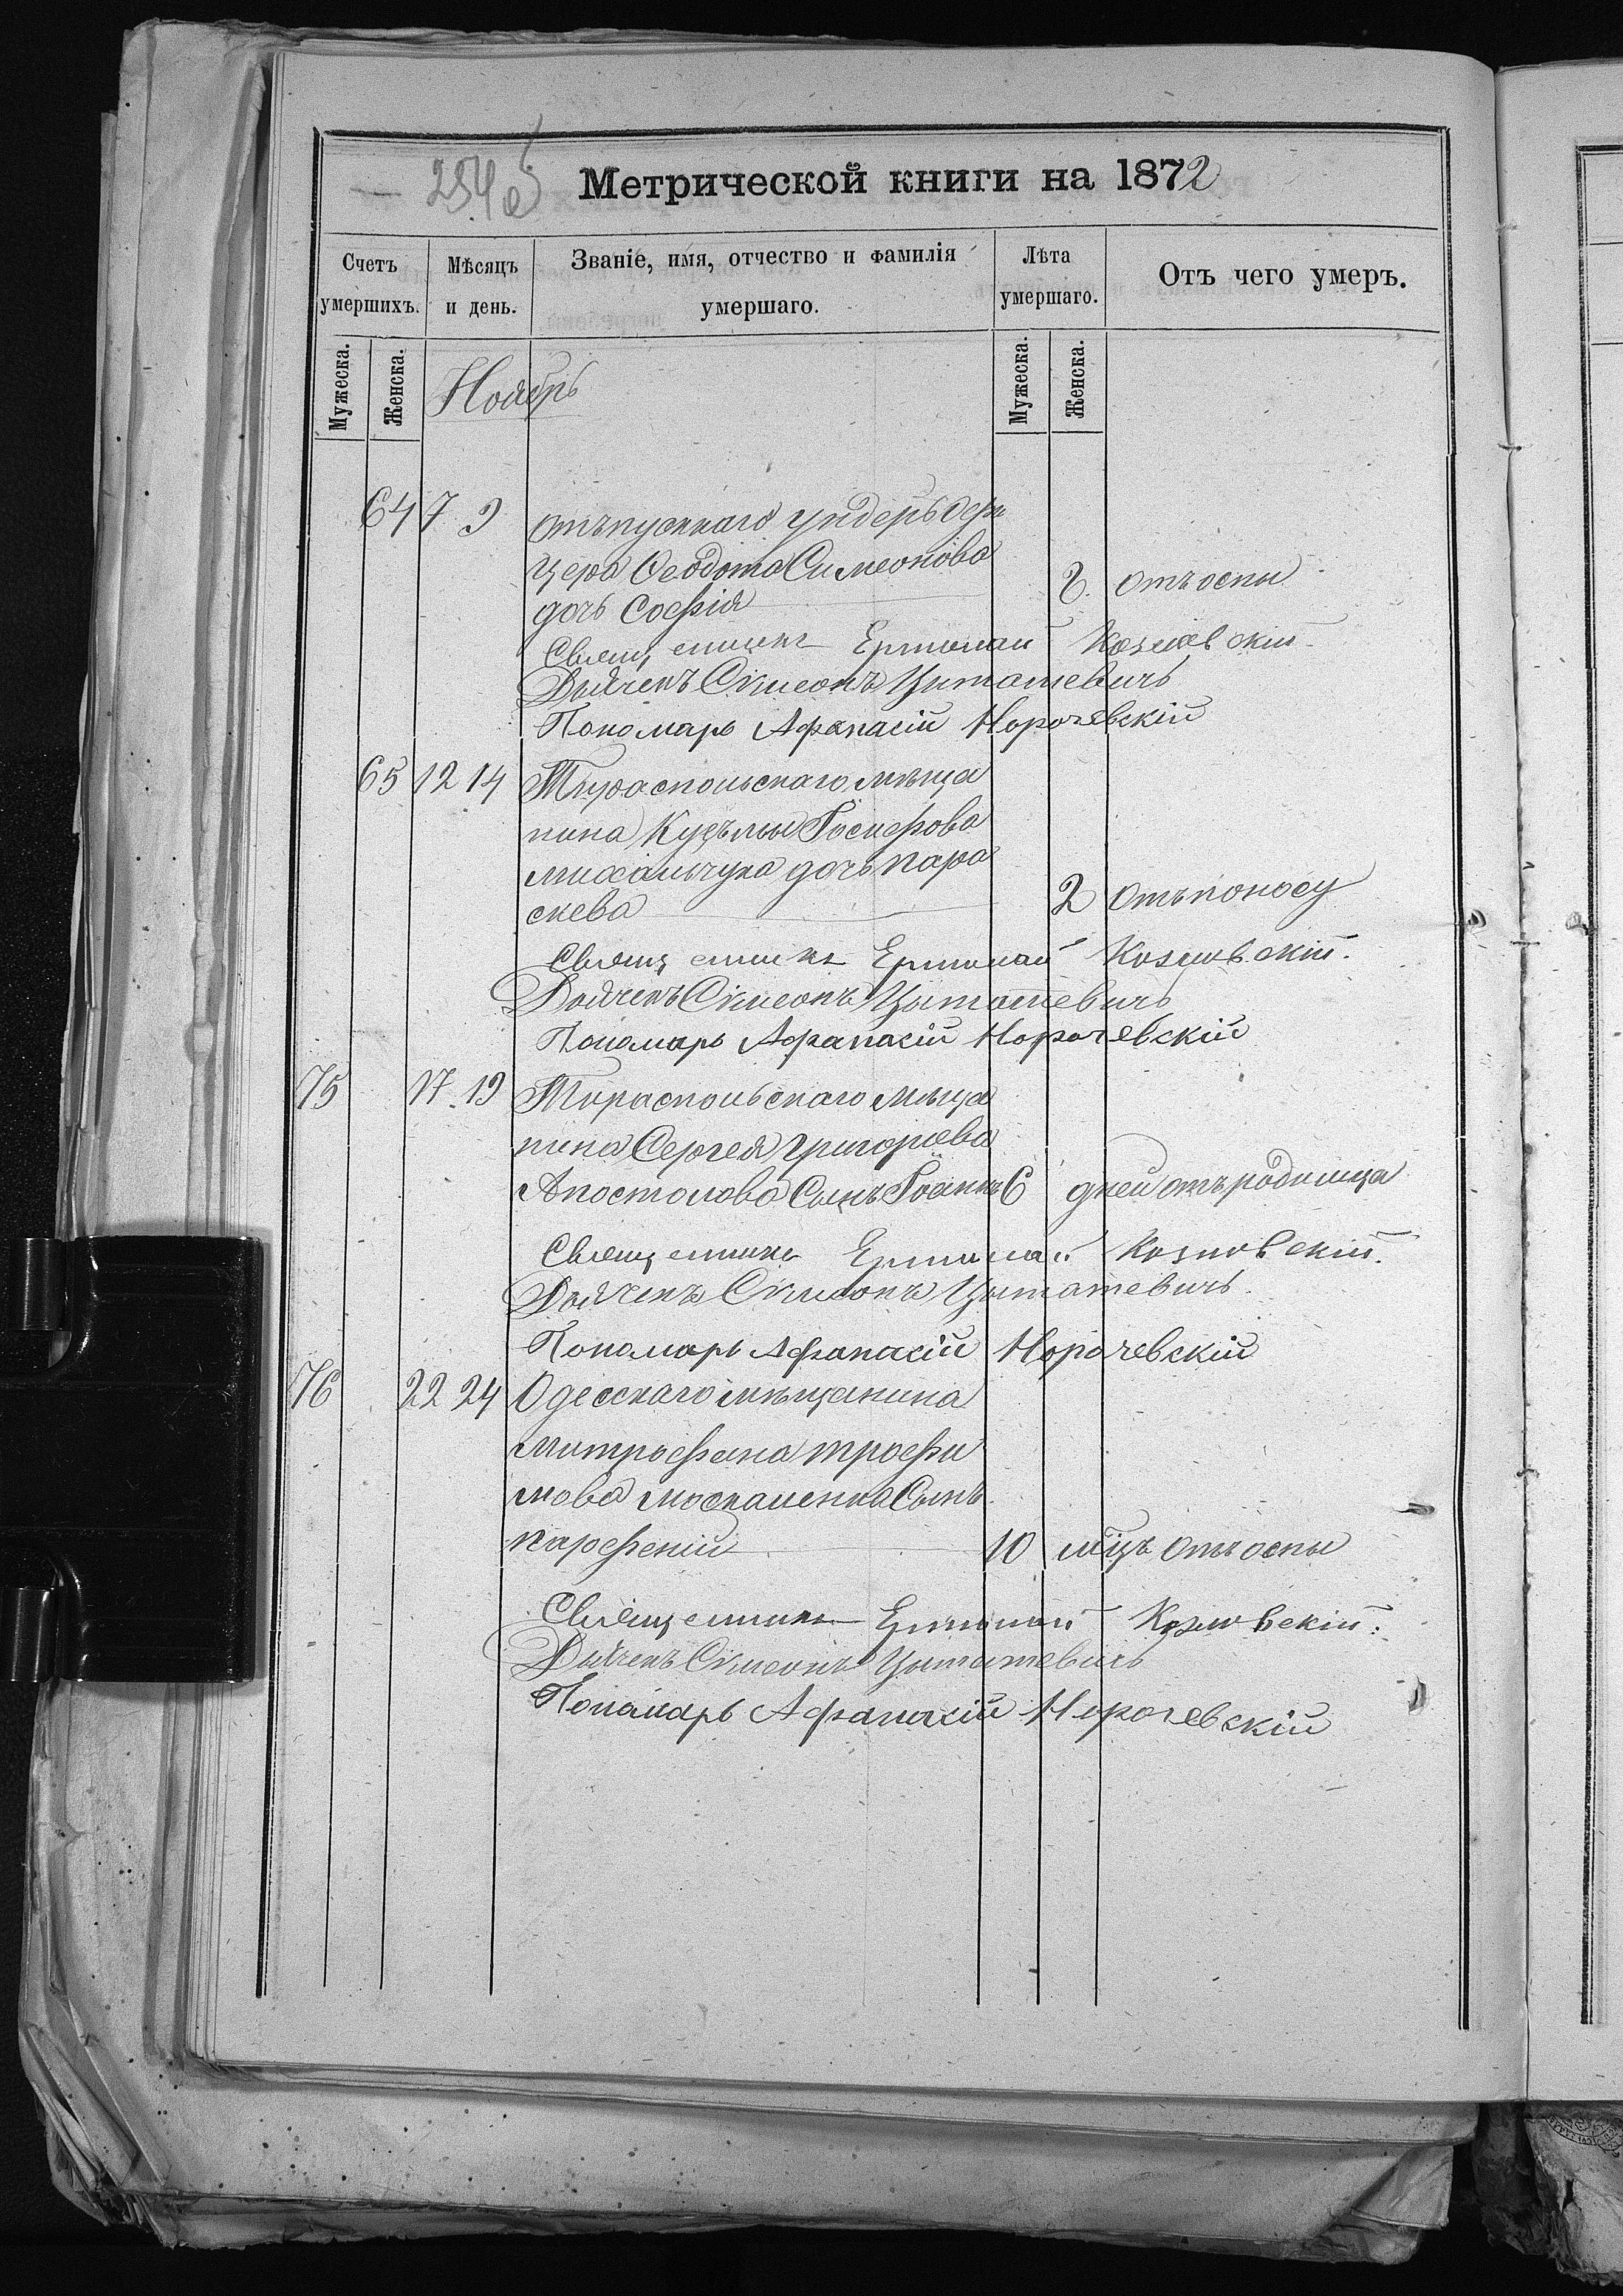 254 об
Метрической книги на 1872
Счетъ умершихъ.
Мѣсяцъ и день.
Званіе, имя, отчество и фамилія умершаго.
Лѣта умершаго.
Отъ чего умеръ.
Мужеска.
Женска.
Мужеска.
Женска.
Ноябрь
64 7 9 отъпускнаго ундеръ офи
цера Феодота Симеонова
дочь Софія 2. отъ оспы
Священникъ Ермолай Козловскій.
Дьячекъ Симеонъ
Пономарь Афанасій Норочевскій
65 12 14 Тираспольскаго мѣща
нина Кузьмы Іосифова
Михальчука дочь Пара
скева 2 отъ поносу
Священникъ Ермолай Козловскій.
Дьячекъ Симеонъ
Пономарь Афанасій Норочевскій
75 17 19 Тираспольскаго мѣща
нина Сергея Григорієва
Апостолова Сынъ Іоаннъ 6 дней отъ родимца
Священникъ Ермолай Козловскій.
Дьячекъ Симеонъ
Пономарь Афанасій Норочевскій
76 22 24 Одесскаго мѣщанина
Митрофана Трофи
мова Москаленка Сынъ
Парфеній 10 мцъ отъ оспы
Священникъ Ермолай Козловскій.
Дьячекъ Симеонъ
Пономарь Афанасій Норочевскій